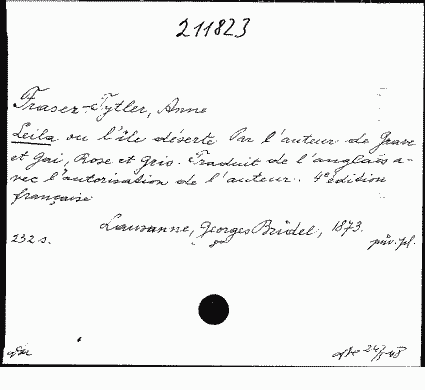 211823
Fraser-Tytler, Anne
Leila ou l'île déserte. Par l'auteur de Grave
et Gai, Rose et Gris. Traduit de l'anglais a-
vec l'autorisation de l'auteur. 4e édition
française
Lausanne, Georges Bridel, 1873.
232 s. püv. pl.